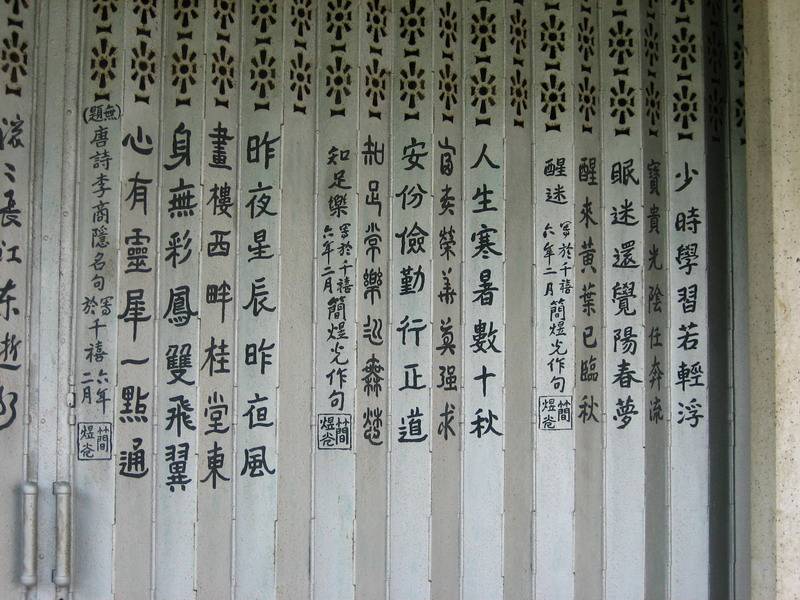 少時學習若輕浮
寶貴光陰任奔流
眠迷還覺陽春夢
醒來黃葉已臨秋
醒迷 寫於千禧六年二月 簡煜光作句 簡煜光
人生寒暑數十秋
富貴榮華莫强求
安份儉勤行正道
知足常樂
知足樂 寫於千禧六年二月 簡煜光作句 簡煜光
昨夜星辰昨夜風
畫樓西畔桂堂東
身無彩鳳雙飛翼
心有靈犀一點通
(無題)唐詩李商隱名句 寫於千禧六年二月 簡煜光
滾〻長江东逝水